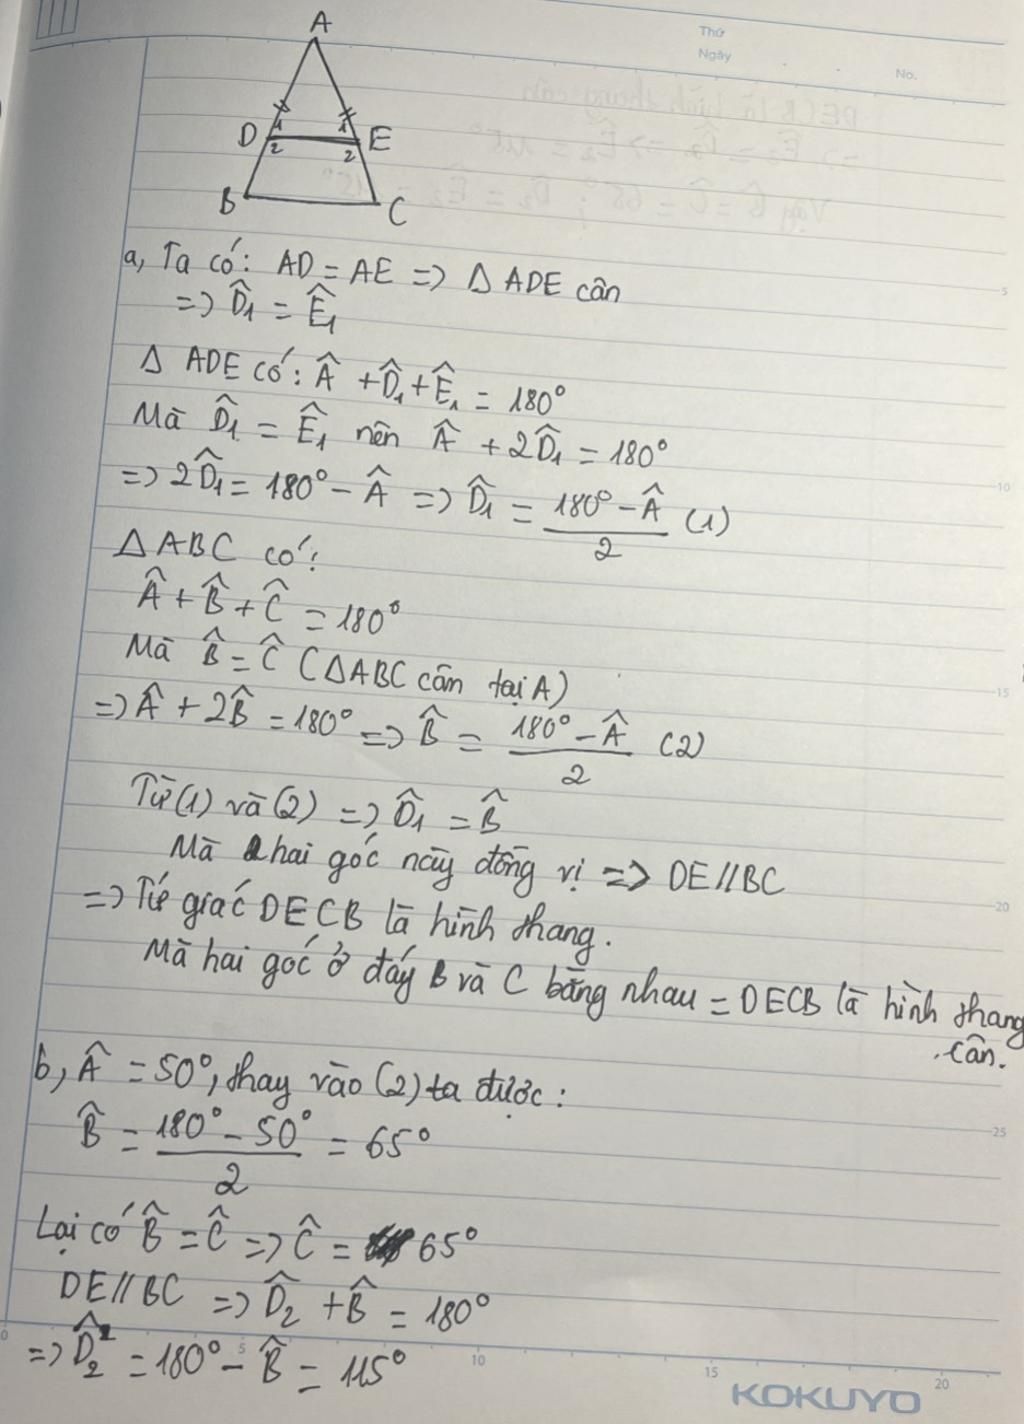 Thứ
Ngày
No.
A
D 1 1 E
2 2
B C
a, Ta có: AD = AE => Δ ADE cân
=> D̂₁ = Ê₁
Δ ADE có: Â + D̂₁ + Ê₁ = 180°
Mà D̂₁ = Ê₁ nên Â + 2D̂₁ = 180°
=> 2D̂₁ = 180° - Â => D̂₁ = (180° - Â)/2 (1)
Δ ABC có:
Â + B̂ + Ĉ = 180°
Mà B̂ = Ĉ (Δ ABC cân tại A)
=> Â + 2B̂ = 180° => B̂ = (180° - Â)/2 (2)
Từ (1) và (2) => D̂₁ = B̂
Mà hai góc này đồng vị => DE // BC
=> Tứ giác DECB là hình thang.
Mà hai góc ở đáy B và C bằng nhau = DECB là hình thang
cân.
b, Â = 50°, thay vào (2) ta được:
B̂ = (180° - 50°)/2 = 65°
Lại có B̂ = Ĉ => Ĉ = 65°
DE // BC => D̂₂ + B̂ = 180°
=> D̂₂ = 180° - B̂ = 115°
5
10
15
20
25
0 5 10 15 20
KOKUYO